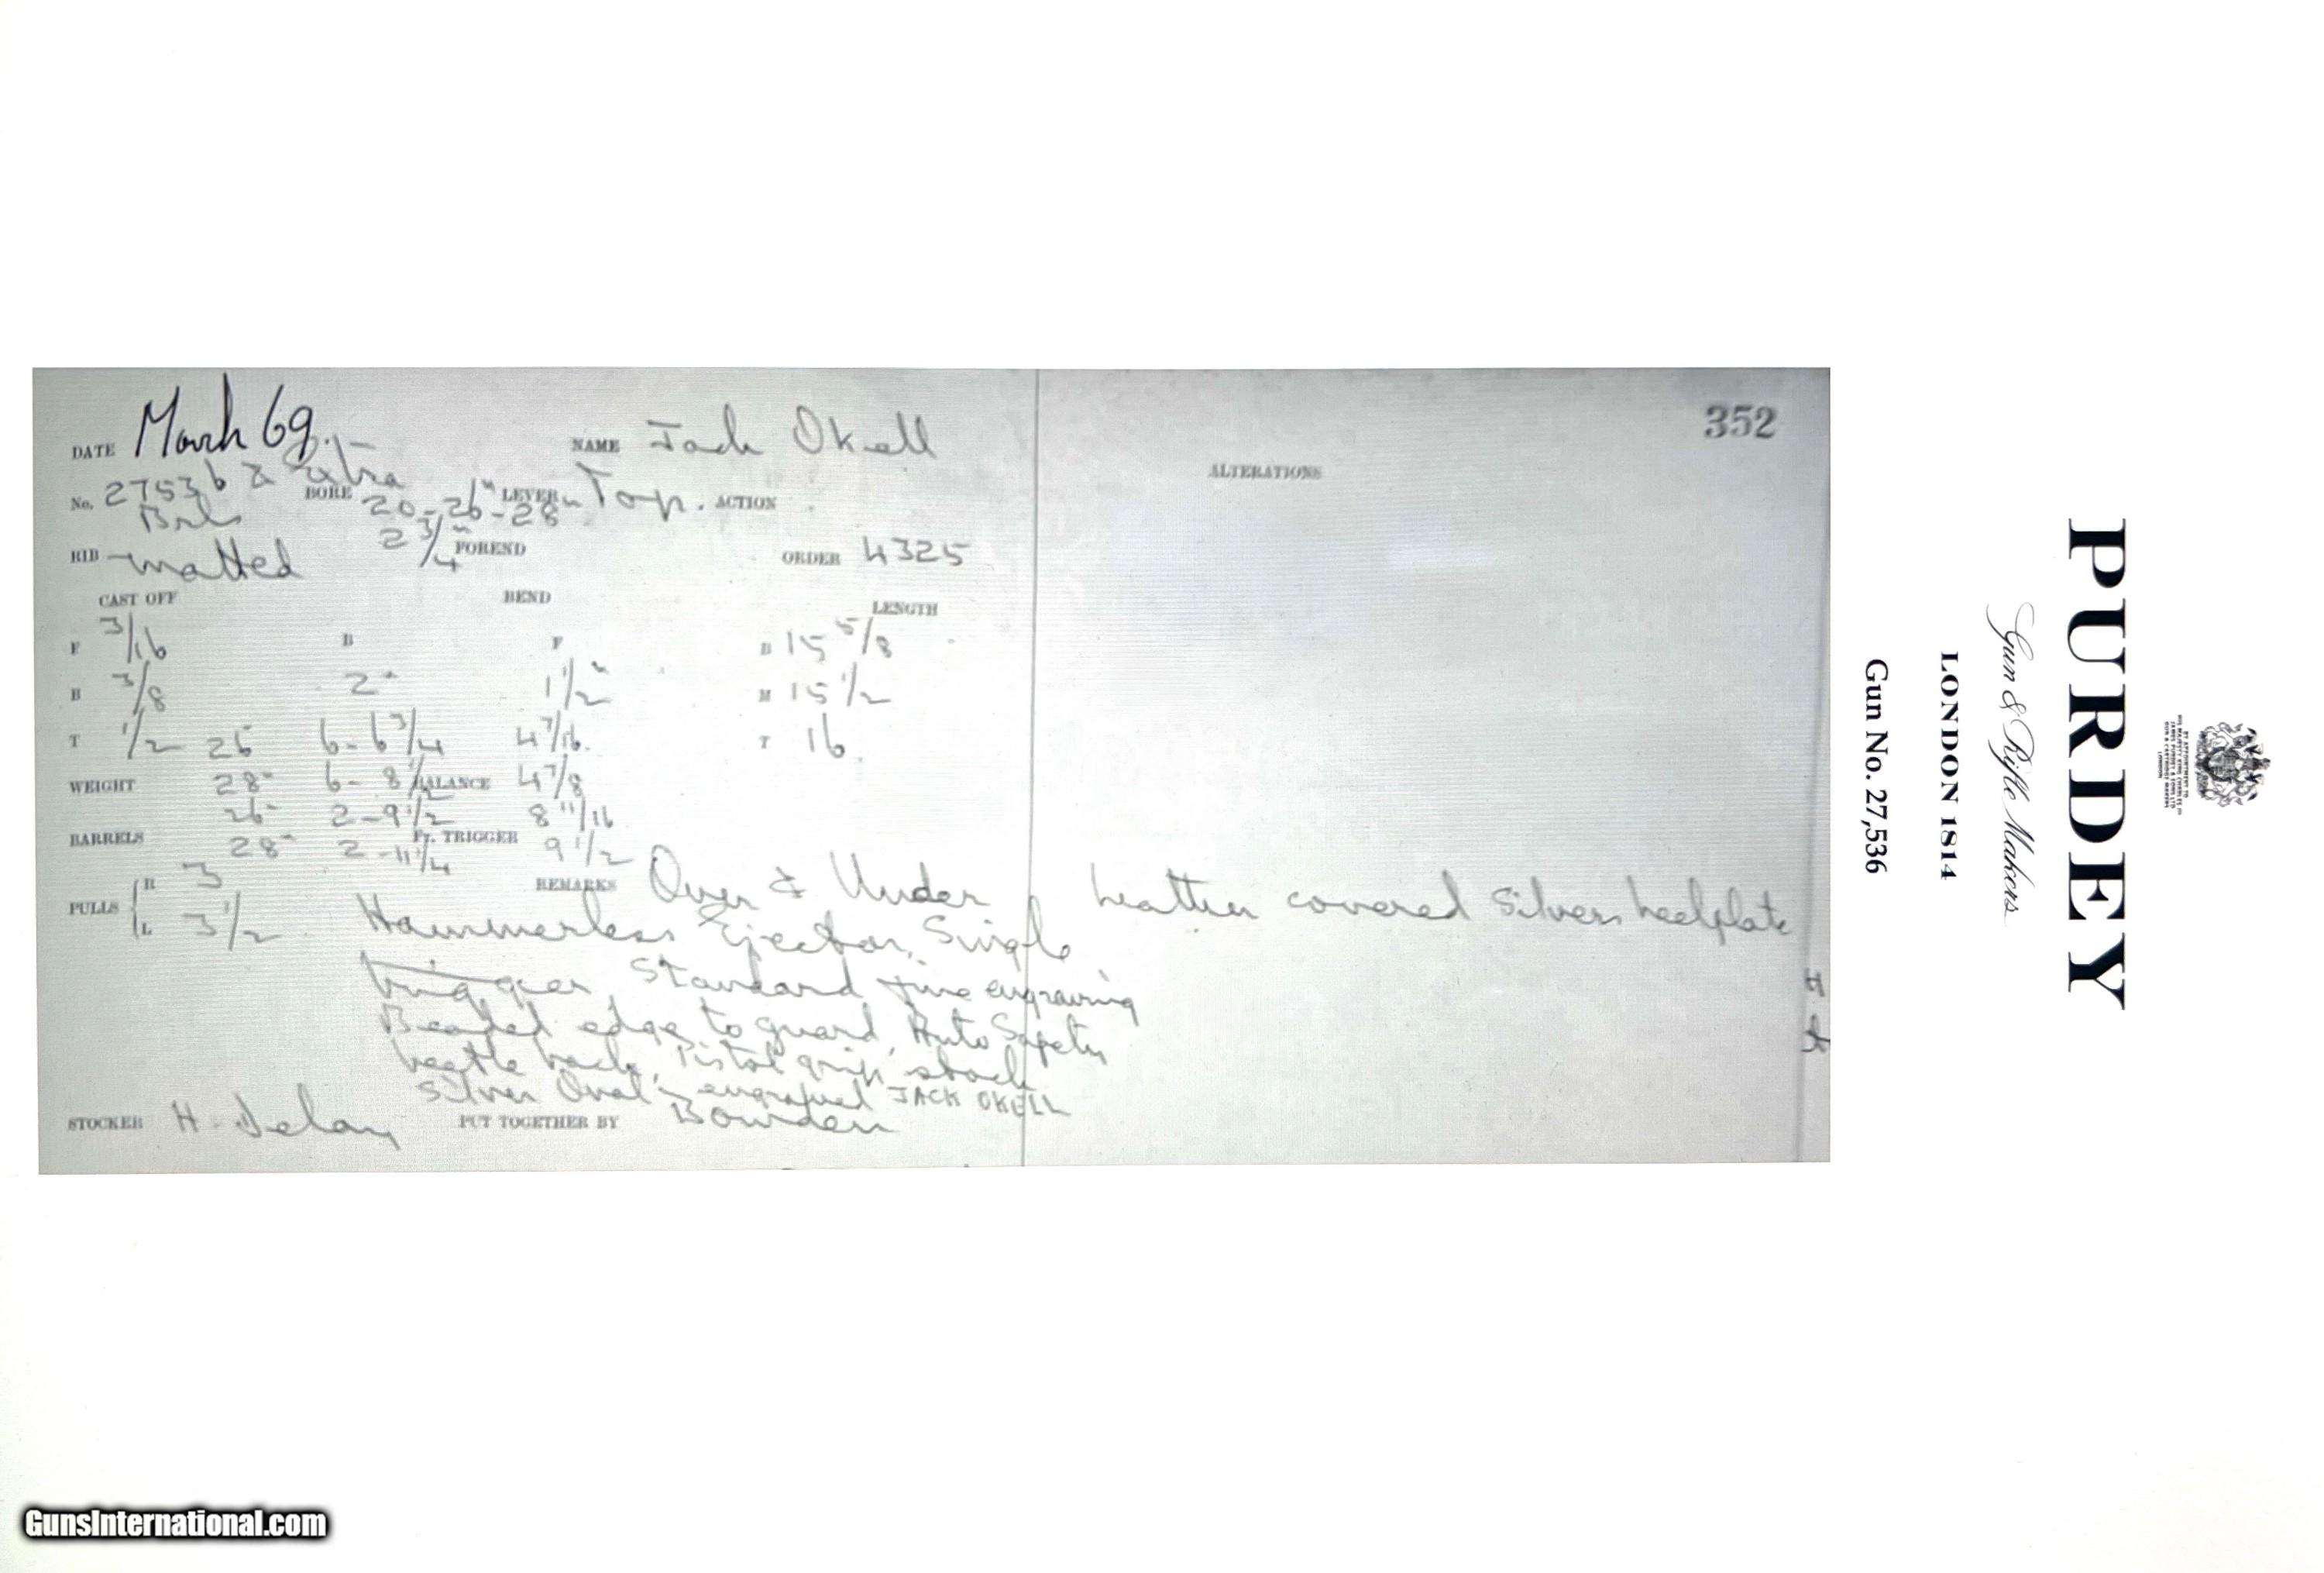 352
DATE March 69. NAME Jack Okell
ALTERATIONS
No. 27536 & extra Brls BORE 20-26"-28" 2 3/4" LEVER Top. ACTION
RIB matted FOREND ORDER 4325
CAST OFF BEND LENGTH
F 3/16 B F B 15 5/8
B 3/8 2" 1 1/2" M 15 1/2
T 1/2 26 6-6 3/4 4 7/16. T 16
WEIGHT 28" 6-8 1/2 BALANCE 4 7/8
26" 2-9 1/2 8 11/16
BARRELS 28" 2-11 1/4 Fr. TRIGGER 9 1/2
PULLS R 3 REMARKS Over & Under leather covered silver heelplate
L 3 1/2 Hammerless Ejector, Single
trigger, Standard fine engraving
Beaded edge to guard, Auto Safety
beetle back, Pistol grip stock
Silver Oval engraved JACK OKELL
STOCKER H. Delay PUT TOGETHER BY Bowden
Gun No. 27,536
LONDON 1814
Gun & Rifle Makers
PURDEY
BY APPOINTMENT TO
HIS MAJESTY KING CHARLES III
JAMES PURDEY & SONS LTD
GUN & CARTRIDGE MAKERS
LONDON
GunsInternational.com